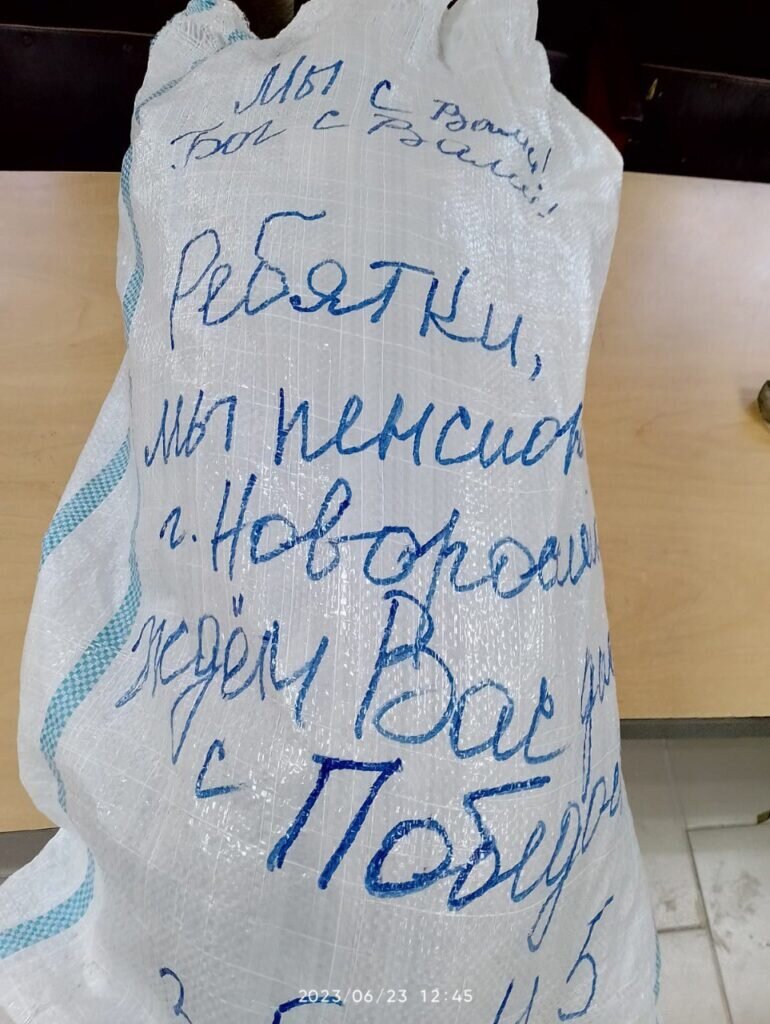 Мы с Вами!
Бог с Вами!
Ребятки,
мы пенсион
г. Новоросий
ждём Вас
с Победо
45
2023/06/23 12:45